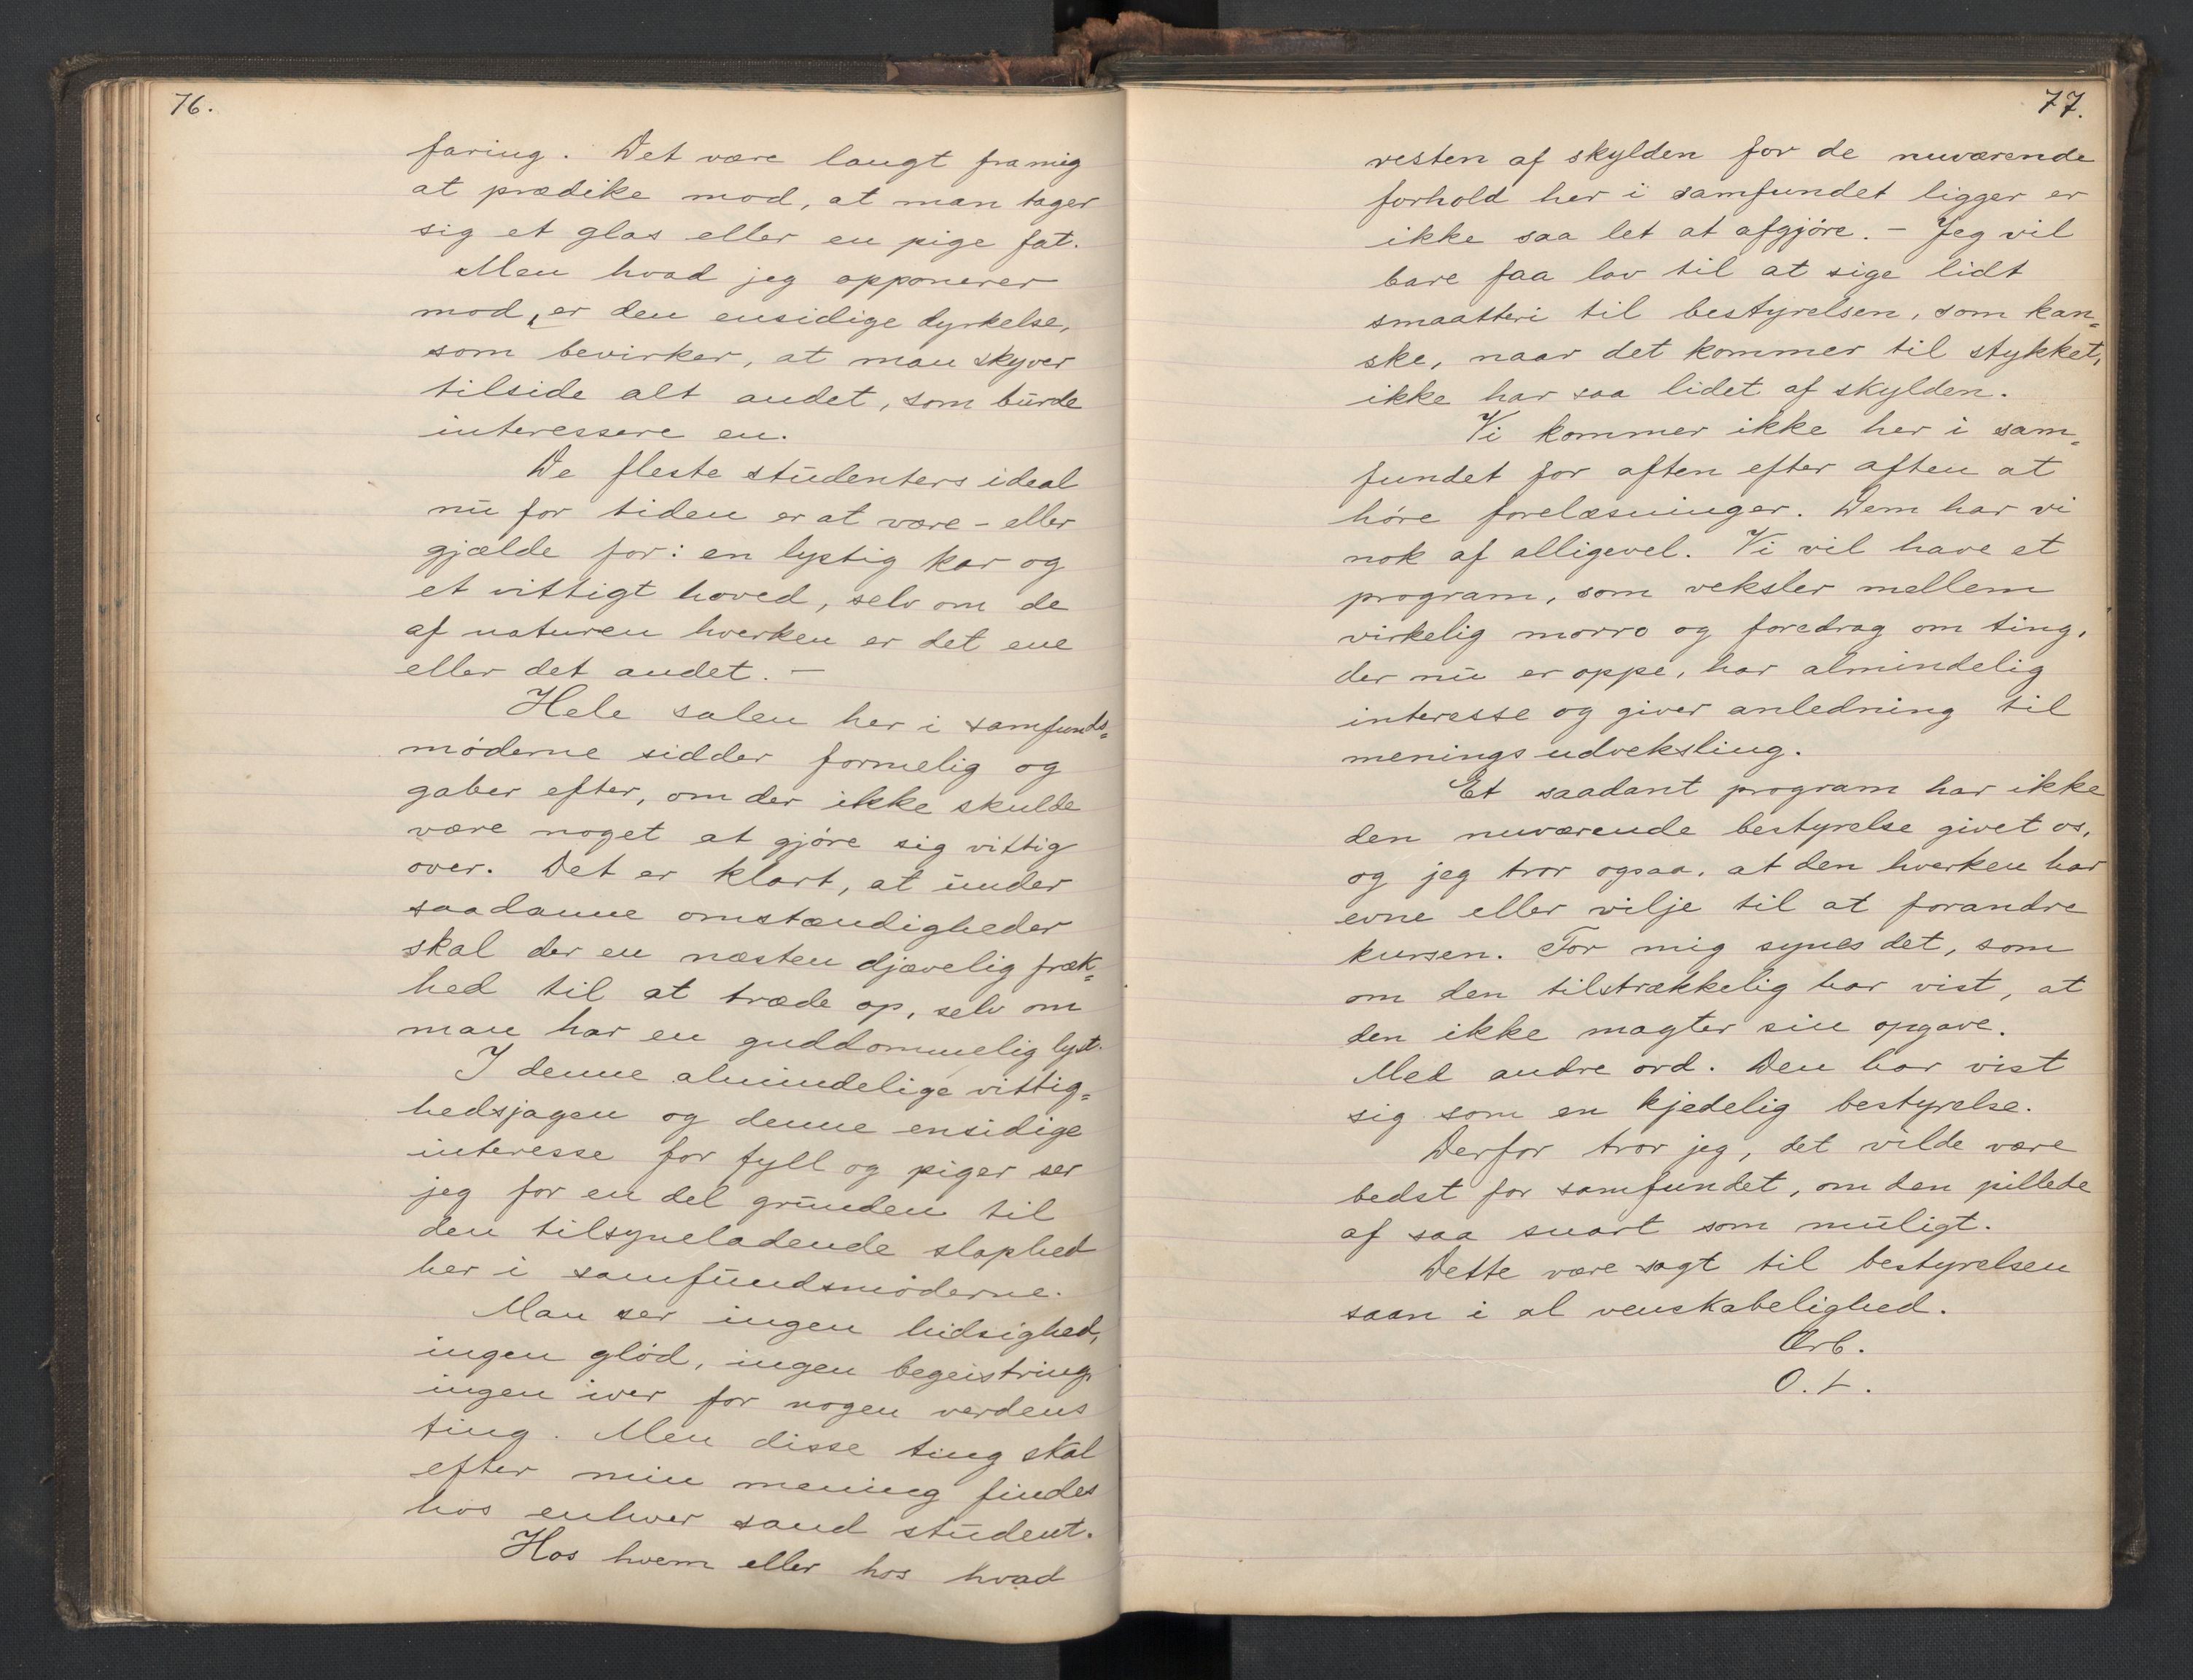 76.
faring. Det være langt fra mig
at prædike mod, at man tager
sig et glas eller en pige fat.
Men hvad jeg opponerer
mod, er den ensidige dyrkelse,
som bevirker, at man skyver
tilside alt andet, som burde
interessere en.
De fleste studenters ideal
nu for tiden er at være - eller
gjælde for: en lystig kar og
et vittigt hoved, selv om de
af naturen hverken er det ene
eller det andet. -
Hele salen her i samfunds=
møderne sidder formelig og
gaber efter, om der ikke skulde
være noget at gjøre sig vittig
over. Det er klart, at under
saadanne omstændigheder
skal der en næsten djævelig fræk=
hed til at træde op, selv om
man har en guddommelig lyst.
I denne almindelige vittig=
hedsjagen og denne ensidige
interesse for fyll og piger ser
jeg for en del grunden til
den tilsyneladende slaphed
her i samfundsmøderne.
Man ser ingen hidsighed,
ingen glød, ingen begeistring,
ingen iver for nogen verdens
ting. Men disse ting skal
efter min mening findes
hos enhver sand student.
Hos hvem eller hos hvad
77.
resten af skylden for de nuværende
forhold her i samfundet ligger er
ikke saa let at afgjøre. - Jeg vil
bare faa lov til at sige lidt
smaatteri til bestyrelsen, som kan=
ske, naar det kommer til stykket,
ikke har saa lidet af skylden.
Vi kommer ikke her i sam=
fundet for aften efter aften at
høre forelæsninger. Dem har vi
nok af alligevel. Vi vil have et
program, som veksler mellem
virkelig morro og foredrag om ting,
der nu er oppe, har almindelig
interesse og giver anledning til
meningsudveksling.
Et saadant program har ikke
den nuværende bestyrelse givet os,
og jeg tror ogsaa, at den hverken har
evne eller vilje til at forandre
kursen. For mig synes det, som
om den tilstrækkelig har vist, at
den ikke magter sin opgave.
Med andre ord. Den har vist
sig som en kjedelig bestyrelse.
Derfor tror jeg, det vilde være
bedst for samfundet, om den pillede
af saa snart som muligt.
Dette være sagt til bestyrelsen
saan i al venskabelighed.
Ørb.
O. L.